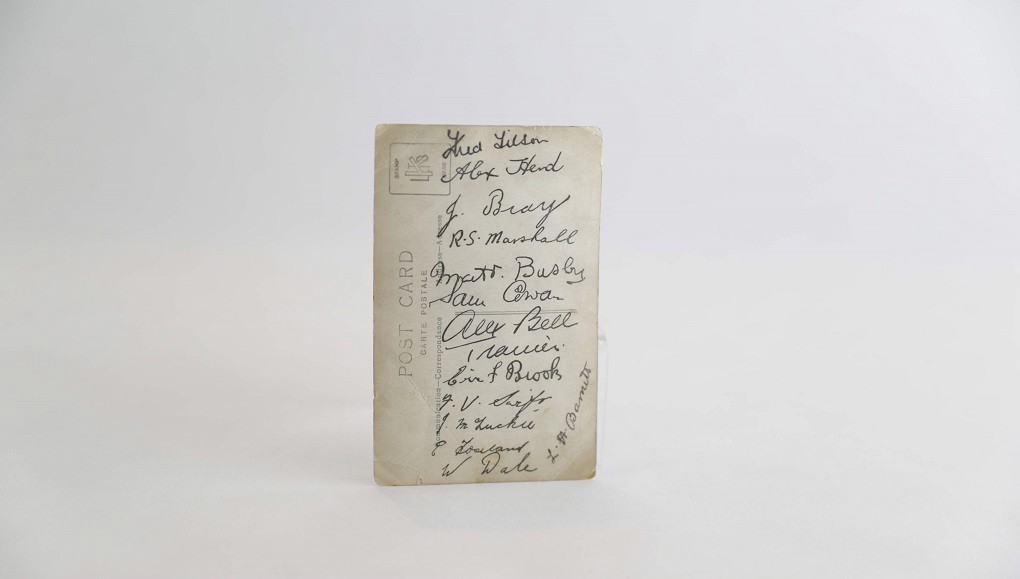 Fred Tilson
Alex Herd
J. Bray
R.S. Marshall
Matt. Busby
Sam Cowan
Alex Bell
Trainer.
Eric F Brook
F. V. Swift
J. McLuckie
C Toseland
W Dale
L. H. Barnett
POST CARD
CARTE POSTALE
Communication—Correspondence
STAMP